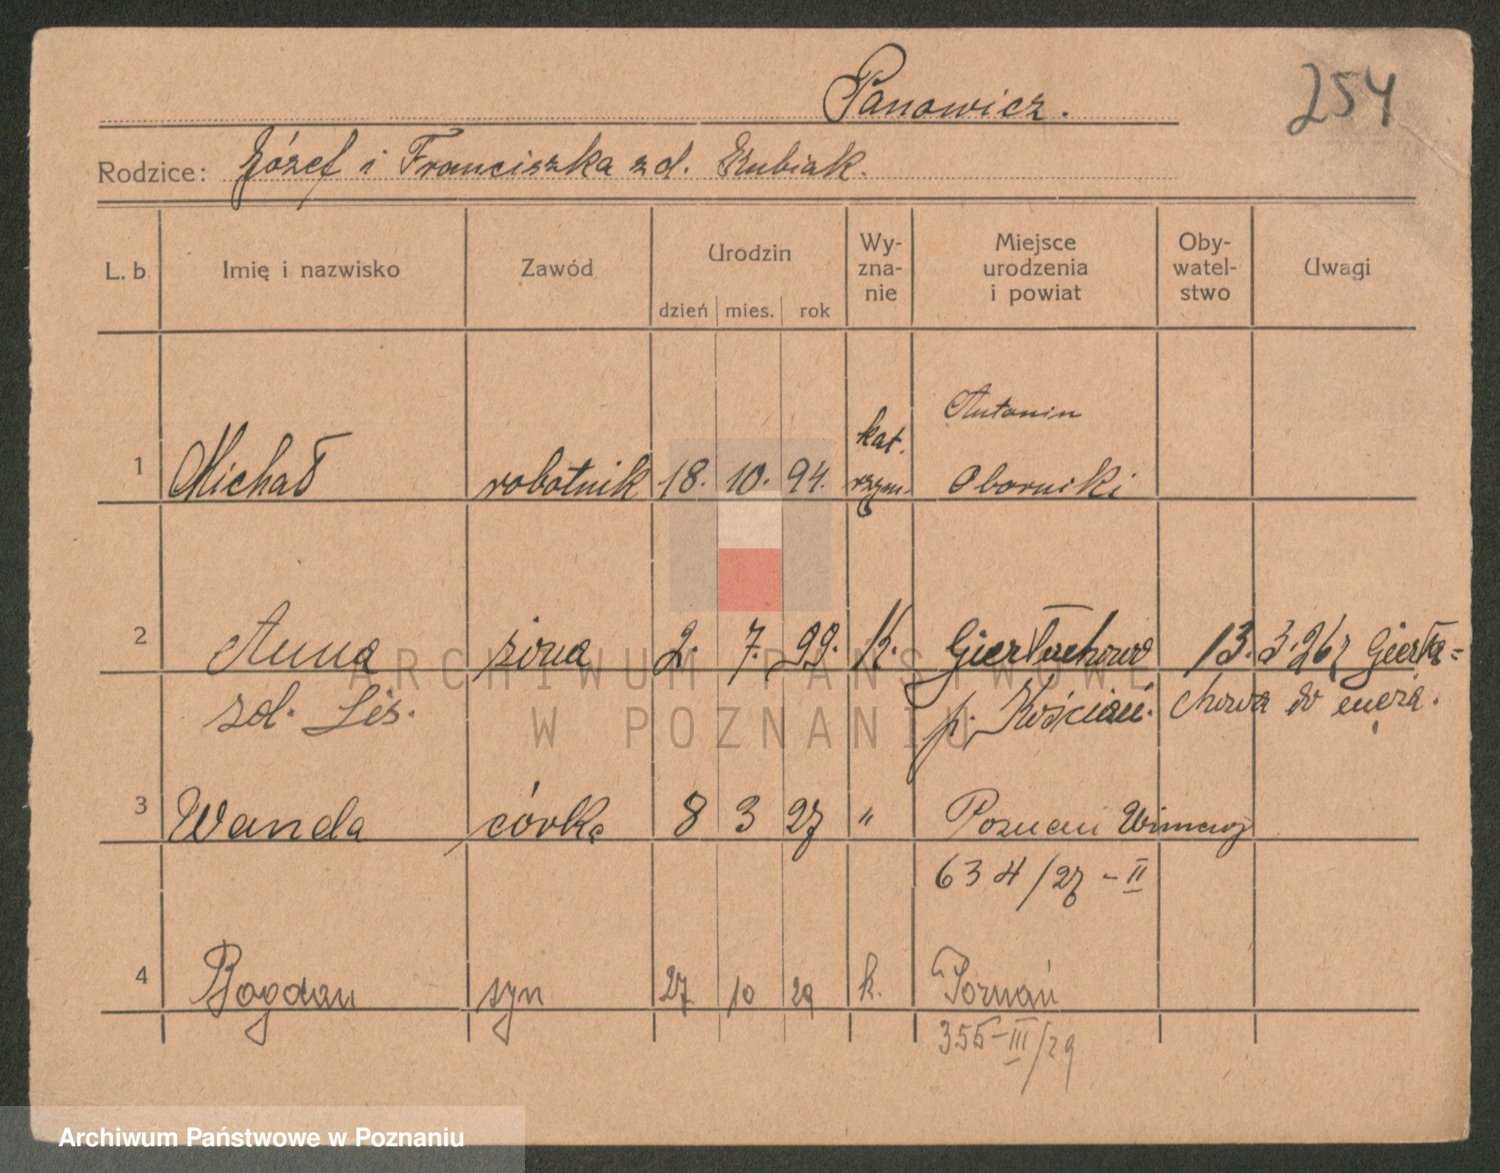 Panowicz.
254
Rodzice: Józef i Franciszka zd. Kubiak.
L. b. Imię i nazwisko Zawód Urodzin dzień mies. rok Wy-zna-nie Miejsce urodzenia i powiat Oby-watel-stwo Uwagi
Antonin
kat.
1 Michał robotnik 18. 10. 94. rzym. Oborniki
2 Anna żona 2. 7. 99. K. Gierłachowo 13.3.26 z Gierła=
zd. Lis. p. Kościan. chowa do męża.
3 Wanda córka 8 3 27 " Poznań Winiary
634/27 - II
4 Bogdan syn 27. 10 29 k. Poznań
355-III/29
ARCHIWUM PAŃSTWOWE
W POZNANIU
Archiwum Państwowe w Poznaniu